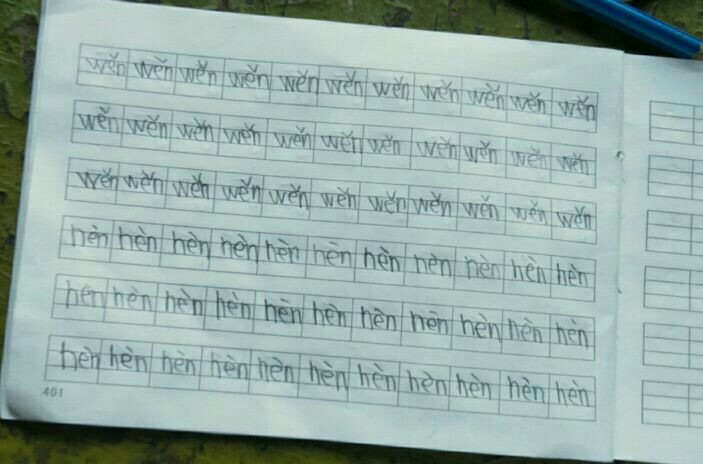 wěn wěn wěn wěn wěn wěn wěn wěn wěn wěn wěn
wěn wěn wěn wěn wěn wěn wěn wěn wěn wěn wěn
wěn wěn wěn wěn wěn wěn wěn wěn wěn wěn wěn
hèn hèn hèn hèn hèn hèn hèn hèn hèn hèn hèn
hèn hèn hèn hèn hèn hèn hèn hèn hèn hèn hèn
hèn hèn hèn hèn hèn hèn hèn hèn hèn hèn hèn
401